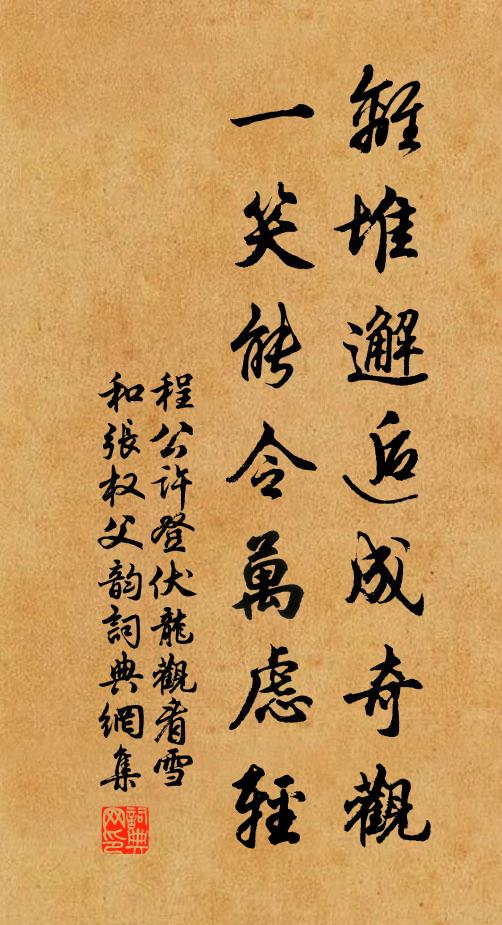 離堆邂逅成奇觀
一笑能令萬慮輕
程公許登伏龍觀看雪
和張权父韵詞典網集
詞典
网印